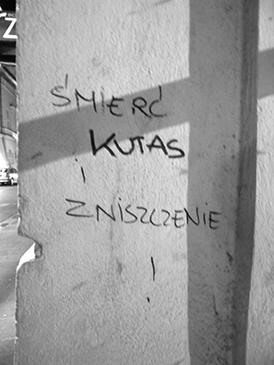 ŚMIERĆ
KUTAS
i
ZNISZCZENIE
!